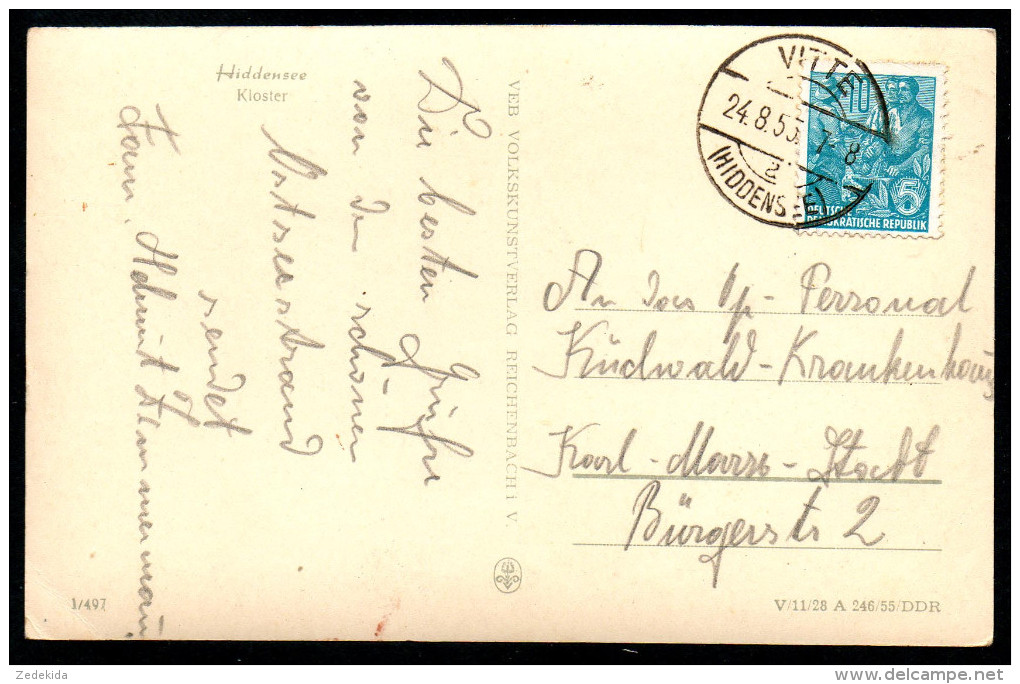 Hiddensee
Kloster
Die besten Grüße
von der schönen
Ostseestrand
sendet
Fam. Helmut
VEB VOLKSKUNSTVERLAG REICHENBACH i V.
VITTE
24.8.55 7-8
a
(HIDDENSEE)
10
5
DEUTSCHE
DEMOKRATISCHE REPUBLIK
An das Op-Personal
Küchwald-Krankenhaus
Karl-Marx-Stadt
Bürgerstr 2
1/497
V/11/28 A 246/55/DDR
Zedekida
delcampe.net